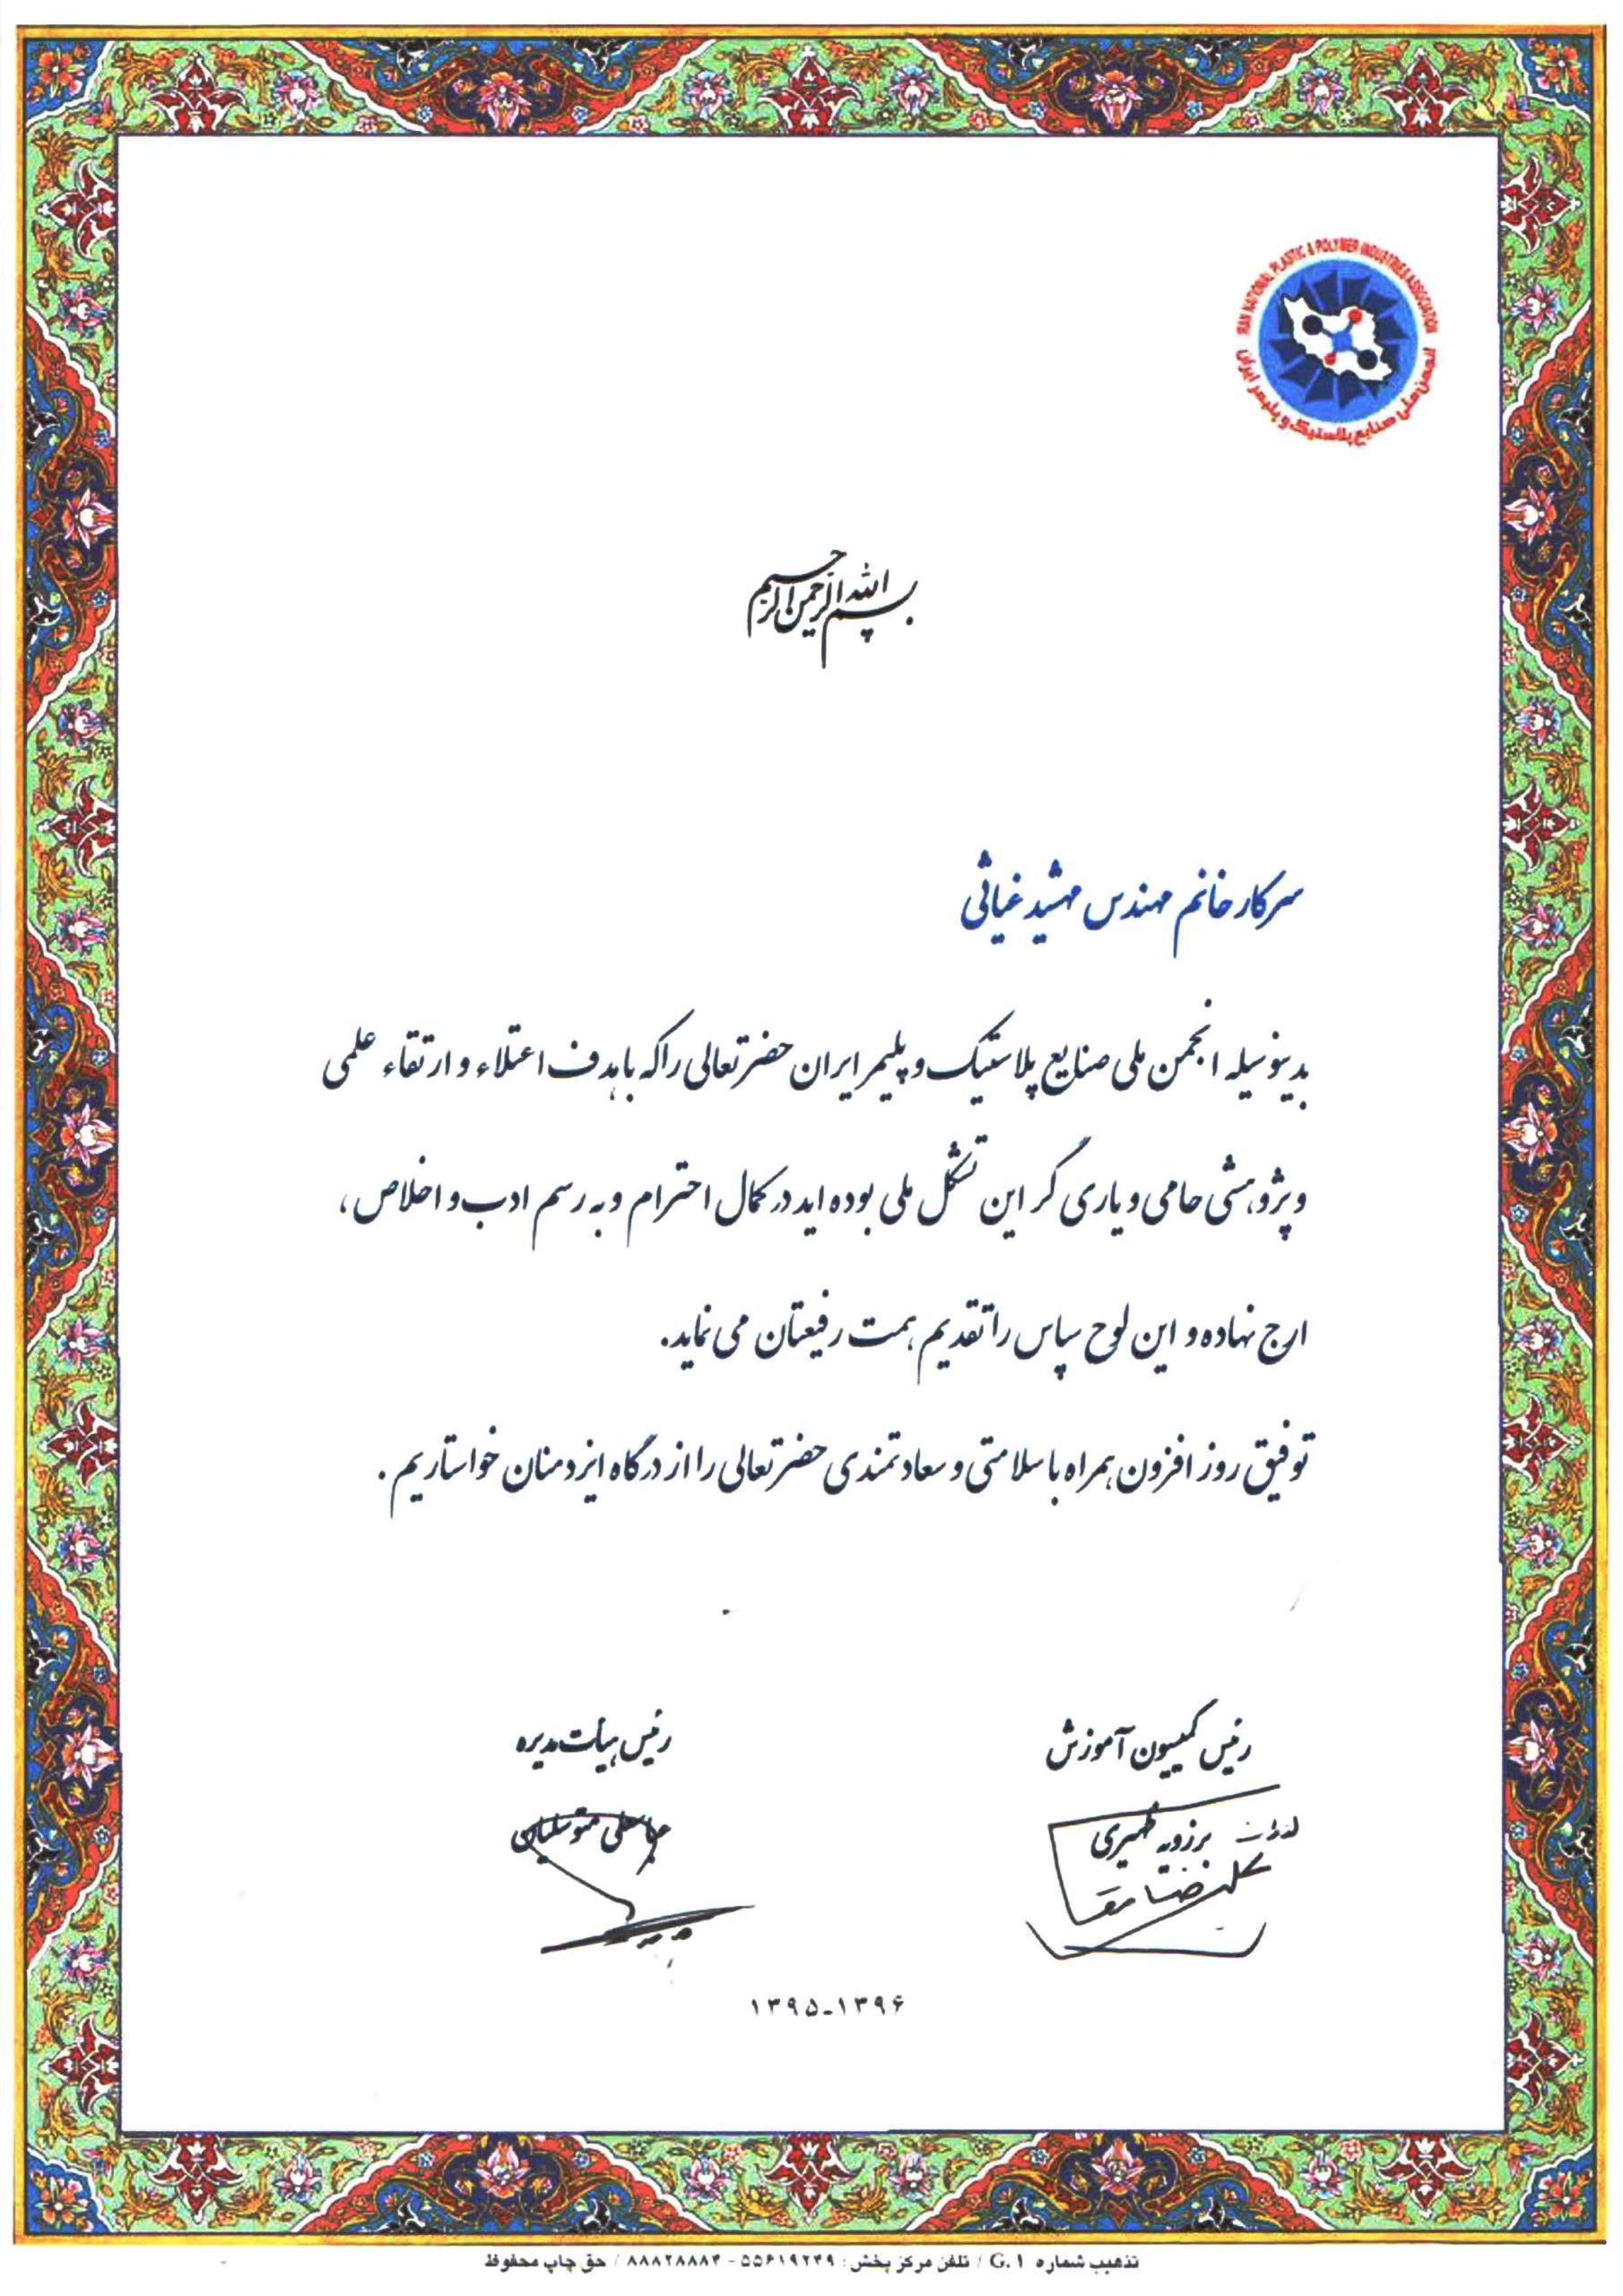 IRAN NATIONAL PLASTIC & POLYMER INDUSTRIES ASSOCIATION
انجمن ملی صنایع پلاستیک و پلیمر ایران
بسم الله الرحمن الرحیم
سرکار خانم مهندس مهشید غیاثی
بدینوسیله انجمن ملی صنایع پلاستیک و پلیمر ایران حضرتعالی را که با هدف اعتلاء و ارتقاء علمی
و پژوهشی حامی و یاری گر این تشکل ملی بوده اید در کمال احترام و به رسم ادب و اخلاص،
ارج نهاده و این لوح سپاس را تقدیم همت رفیعتان می نماید.
توفیق روز افزون همراه با سلامتی و سعادتمندی حضرتعالی را از درگاه ایزد منان خواستاریم.
رئیس کمیسیون آموزش
رئیس هیأت مدیره
برزویه ظهیری
عباسعلی متوسلیان
۱۳۹۵-۱۳۹۶
تذهیب شماره G.۱ / تلفن مرکز پخش: ۵۵۶۱۹۲۴۹ - ۸۸۸۲۸۸۸۴ / حق چاپ محفوظ